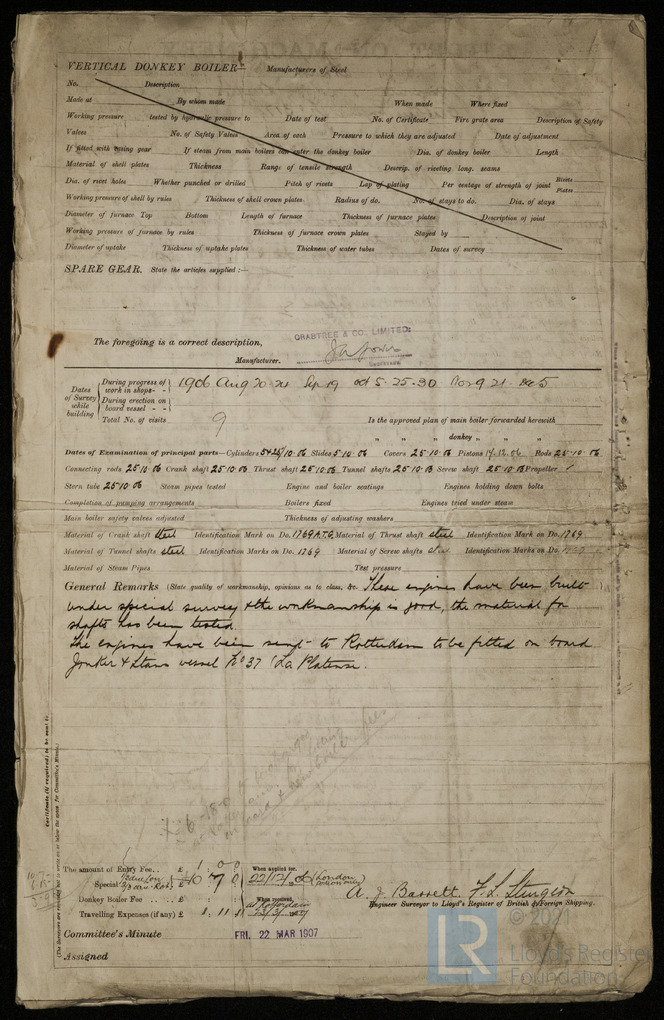 VERTICAL DONKEY BOILER— Manufacturers of Steel
No. Description
Made at By whom made When made Where fixed
Working pressure tested by hydraulic pressure to Date of test No. of Certificate Fire grate area Description of Safety
Valves No. of Safety Valves Area of each Pressure to which they are adjusted Date of adjustment
If fitted with easing gear If steam from main boilers can enter the donkey boiler Dia. of donkey boiler Length
Material of shell plates Thickness Range of tensile strength Descrip. of riveting long. seams
Dia. of rivet holes Whether punched or drilled Pitch of rivets Lap of plating Per centage of strength of joint Rivets Plates
Working pressure of shell by rules Thickness of shell crown plates Radius of do. No. of stays to do. Dia. of stays
Diameter of furnace Top Bottom Length of furnace Thickness of furnace plates Description of joint
Working pressure of furnace by rules Thickness of furnace crown plates Stayed by
Diameter of uptake Thickness of uptake plates Thickness of water tubes Dates of survey
SPARE GEAR. State the articles supplied:—
The foregoing is a correct description,
CRABTREE & CO, LIMITED.
Manufacturer.
Dates of Survey while building
During progress of work in shops - - 1906 Aug 20 Sep 19 Oct 5 - 25 - 30 Nov 9 21
During erection on board vessel - -
Total No. of visits 9 Is the approved plan of main boiler forwarded herewith
" " donkey " " "
Dates of Examination of principal parts—Cylinders Slides 5·10·06 Covers 25·10·06 Pistons Rods 25·10·06
Connecting rods 25·10·06 Crank shaft 25·10·06 Thrust shaft 25·10·06 Tunnel shafts 25·10·06 Screw shaft 25·10·06 Propeller
Stern tube 25·10·06 Steam pipes tested Engine and boiler seatings Engines holding down bolts
Completion of pumping arrangements Boilers fixed Engines tried under steam
Main boiler safety valves adjusted Thickness of adjusting washers
Material of Crank shaft steel Identification Mark on Do. 1769 A.T.G. Material of Thrust shaft steel Identification Mark on Do. 1769
Material of Tunnel shafts steel Identification Marks on Do. 1769 Material of Screw shafts steel Identification Marks on Do.
Material of Steam Pipes Test pressure
General Remarks (State quality of workmanship, opinions as to class, &c. These engines have been built
under special survey & the workmanship is good, the material for
shafts has been tested.
The engines have been sent to Rotterdam to be fitted on board
Jonker & Stans vessel No 37 "La Platense.
Certificate (if required) to be sent to
(The Surveyors are requested not to write on or below the space for Committee's Minute.)
The amount of Entry Fee .. £ 1 . 0 0 When applied for,
Special £ (London
Donkey Boiler Fee £ When received,
Travelling Expenses (if any) £ 1 . 11
A. J. Barrett. F. L. Sturgeon
Engineer Surveyor to Lloyd's Register of British & Foreign Shipping.
Committee's Minute FRI. 22 MAR 1907
Assigned
© 2021
LR Lloyd's Register
Foundation